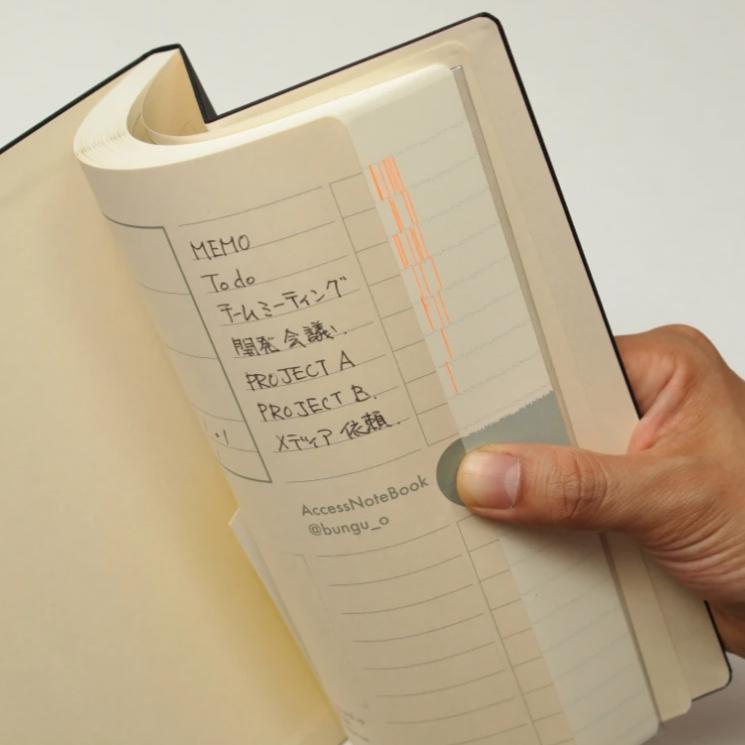 MEMO
Todo
チームミーティング
開発会議
PROJECT A
PROJECT B.
メディア 依頼.
AccessNoteBook
@bungu_o